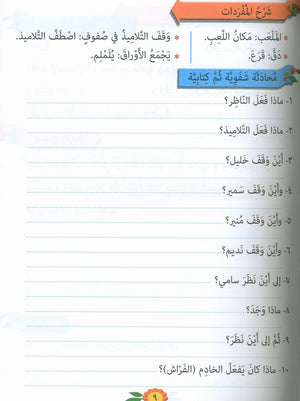 شَرْحُ المُفْرَدات
* المَلْعَب: مَكانُ اللَّعِبِ.
* دَقَّ: قَرَعَ.
* وَقَفَ التَّلاميذُ في صُفوفٍ: اصْطَفَّ التَّلاميذ.
* يَجْمَعُ الأَوْراقَ: يُلَمْلِم.
مُحادَثَة شَفَوِيَّة ثُمَّ كِتابِيَّة
١- ماذا فَعَلَ النّاظِر؟
٢- ماذا فَعَلَ التَّلاميذ؟
٣- أَيْنَ وَقَفَ خَليل؟
٤- وأَيْنَ وَقَفَ سَمير؟
٥- وأَيْنَ وَقَفَ مُنير؟
٦- وأَيْنَ وَقَفَ نَديم؟
٧- إلى أَيْنَ نَظَرَ سامي؟
٨- ماذا وَجَدَ؟
٩- ثُمَّ إلى أَيْنَ نَظَرَ؟
١٠- ماذا كانَ يَفْعَلُ الخادِم (الفَرّاش)؟
٩